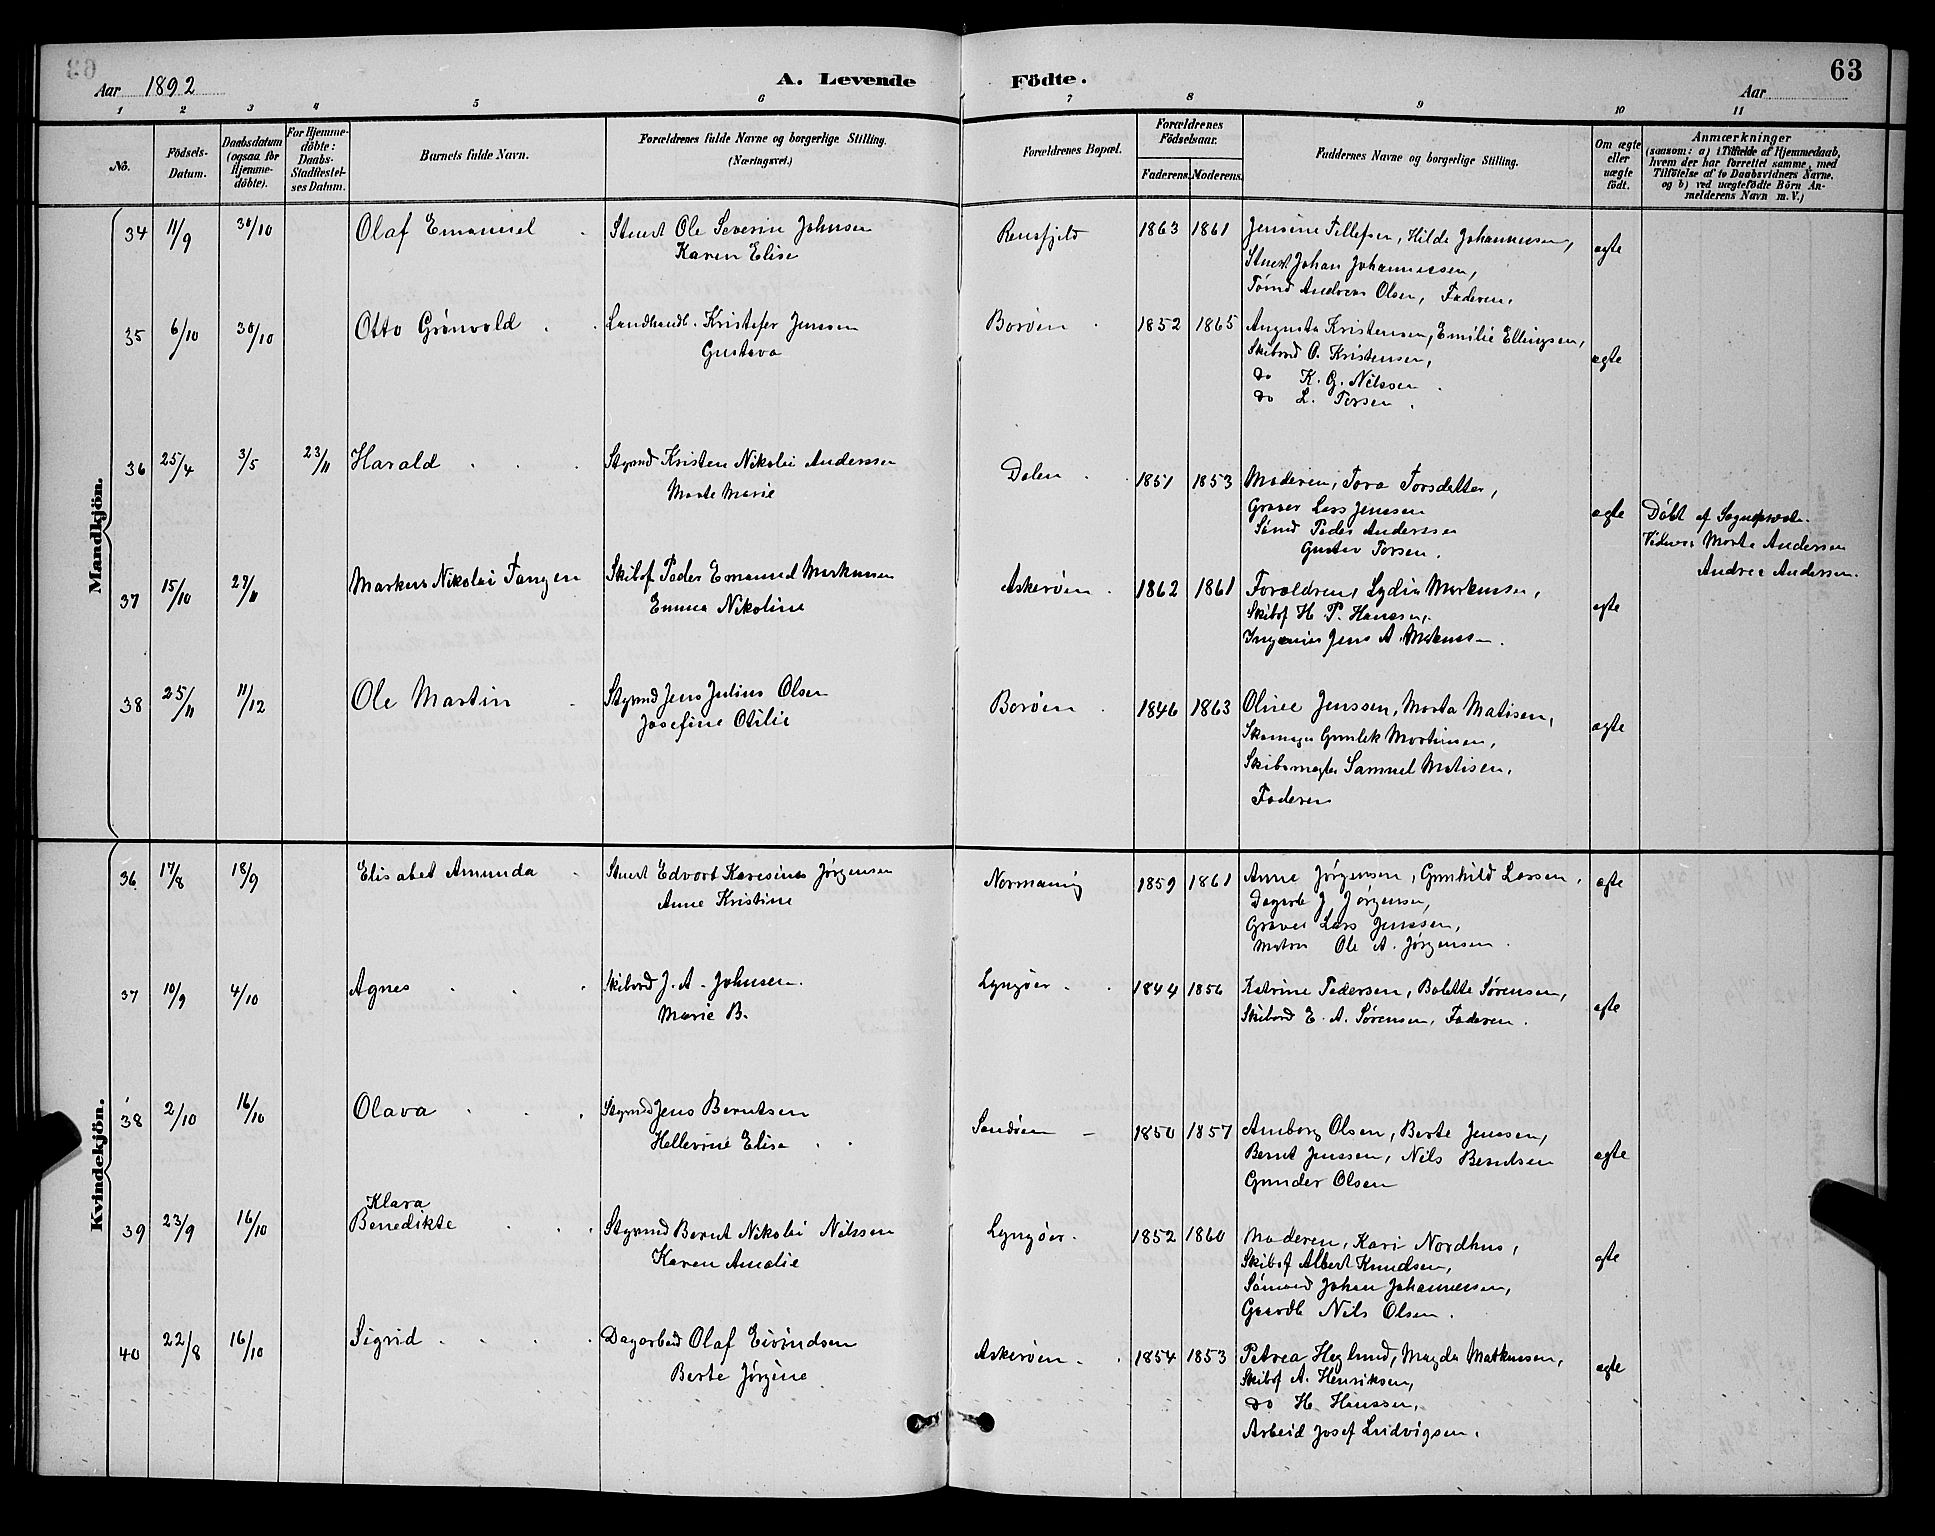 63
Aar 1892
A. Levende Födte.
Aar
1 2 3 4 5 6 7 8 9 10 11
No.
Födsels-Datum.
Daabsdatum (ogsaa for Hjemme-döbte).
For Hjemme-döbte: Daabs-Stadfestel-ses Datum.
Barnets fulde Navn.
Forældrenes fulde Navne og borgerlige Stilling. (Næringsvei.)
Forældrenes Bopæl.
Forældrenes Födselsaar.
Faderens. Moderens.
Faddernes Navne og borgerlige Stilling.
Om ægte eller uægte födt.
Anmærkninger
(saasom: a) i Tilfælde af Hjemmedaab,
hvem der har forrettet samme, med
Tilföielse af to Daabsvidners Navne.
og b) ved uægtefödte Börn An-
melderens Navn m. V.)
Mandkjön.
34 11/9 30/10 Olaf Emanuel Stuert Ole Severin Johnsen 1863 1861 Jensine Tellefsen, Hilde Johannesen, ægte
Karen Elise
Stuert Johan Johannessen,
Tømd Andreas Olsen, Faderen.
35 6/10 30/10 Otto Grönvold Landhandl. Kristofer Jensen Borøen 1852 1865 Augusta Kristensen, Emilie Ellingsen, ægte
Gustava
Skibsrd O. Kristensen,
do K. G. Nilssen
do L. Torsen.
36 25/4 3/5 23/11 Harald Styrmd Kristen Nikolai Andersen Dalen 1851 1853 Moderen, Tora Torsdatter, ægte
Marte Marie
Graver Lars Jenssen
Sømd Peder Andersen
Gustav Torsen.
Döbt af Sognepræsten.
Vidner: Marte Andersen
Andrea Andersen.
37 15/10 27/11 Markus Nikolai Tangen Skibsf Peder Emanuel Markussen Askerøen 1862 1861 Forældrene, Lydia Markussen, ægte
Emma Nikoline
Skibsf H. P. Hanssen,
Ingeniør Jens A. Markussen.
38 25/11 11/12 Ole Martin Styrmd Jens Julius Olsen Borøen 1846 1863 Olinee Jenssen, Marta Matisen, ægte
Josefine Otilie
Skomager Gunlek Mortensen,
Skibsmægler Samuel Matisen,
Faderen
Kvindekjön.
36 17/8 18/9 Elisabet Amunda Stuert Edvart Karesius Jørgensen 1859 1861 Anne Jørgensen, Gunhild Larsen, ægte
Anne Kristine
Dagarb J. Jørgensen,
Graver Lars Jenssen,
Matros Ole A. Jørgensen.
37 10/9 4/10 Agnes Skibsrd J. A. Johnsen. Lyngøer 1844 1856 Katrine Pedersen, Bolette Sørensen, ægte
Marie B.
Skibsrd E. A. Sørensen, Faderen.
38 2/10 16/10 Olava Styrmd Jens Berntsen Sandøen 1850 1857 Amborg Olsen, Berte Jenssen, ægte
Hellevine Elise
Bernt Jenssen, Nils Berntsen
Gunder Olsen
39 23/9 16/10 Klara
Benedikte Styrmd Bernt Nikolai Nilssen Lyngøer. 1852 1860 Moderen, Kari Nordhus, ægte
Karen Amalie
Skibsf Albert Knudsen,
Sømand Johan Johannessen,
Gaardb Nils Olsen.
40 22/8 16/10 Sigrid Dagarbeid Olaf Eivindsen Askerøen 1854 1853 Petrea Heglund, Magda Markussen, ægte
Berte Jørgine
Skibsf A. Henriksen,
do H. Hanssen,
Arbeid Josef Ludvigsen.